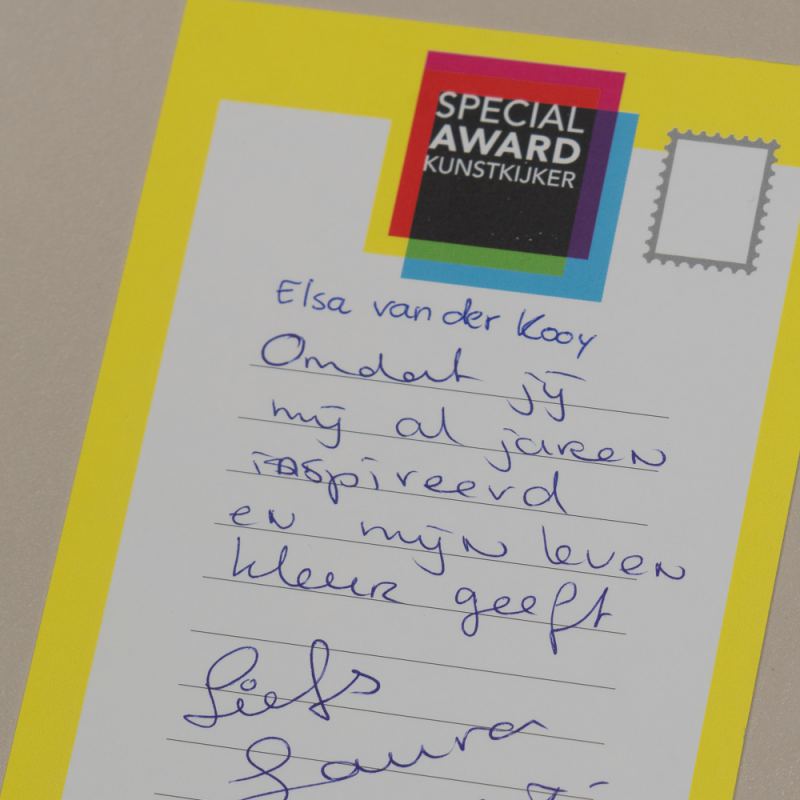 SPECIAL
AWARD
KUNSTKIJKER
Elsa van der Kooy
Omdat jij
mij al jaren
inspireerd
en mijn leven
kleur geeft
Liefs
Laura